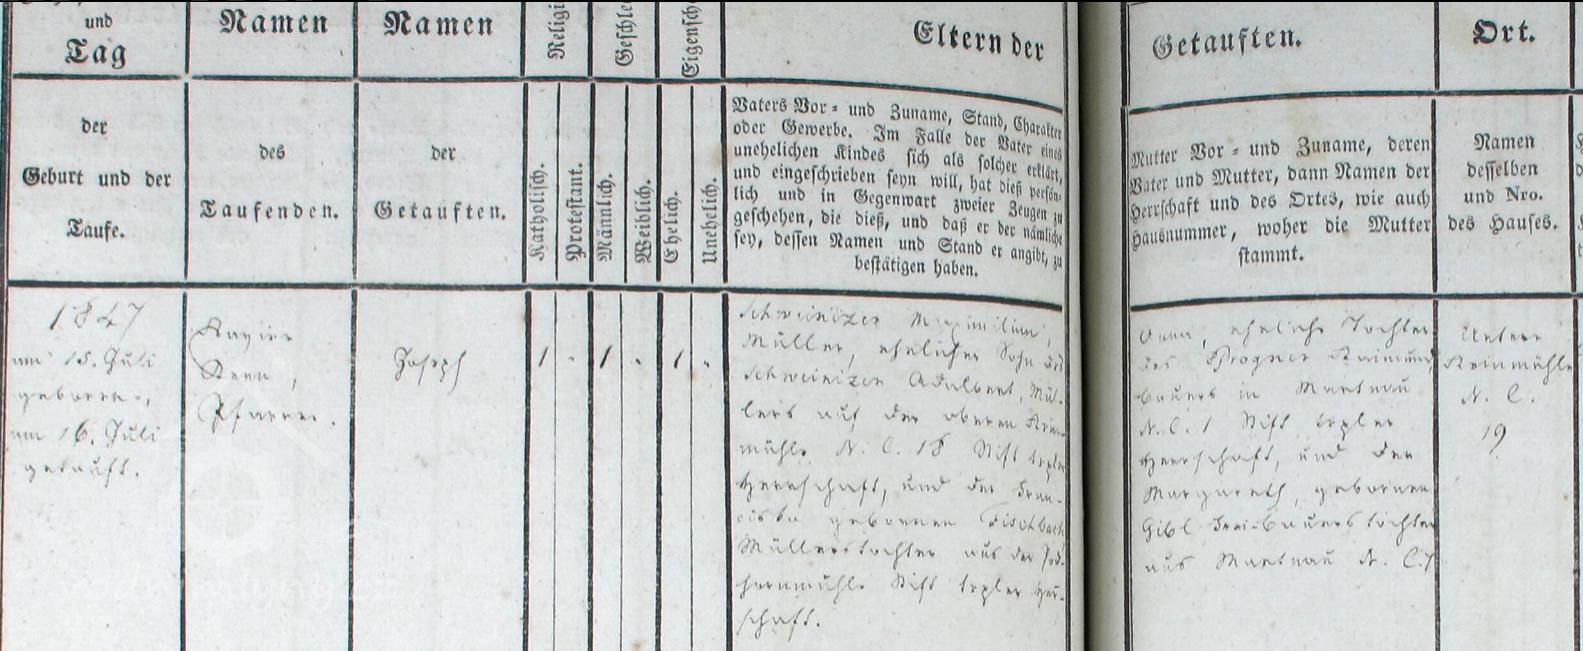 und
Tag
Namen
Namen
Religi
Geschle
Eigensch
Eltern der
Getauften.
Ort.
der
Geburt und der
Taufe.
des
Taufenden.
der
Getauften.
Katholisch.
Protestant.
Männlich.
Weiblich.
Ehelich.
Unehelich.
Vaters Vor- und Zuname, Stand, Charakter
oder Gewerbe. Im Falle der Vater eines
unehelichen Kindes sich als solcher erklärt,
und eingeschrieben seyn will, hat dieß persön-
lich und in Gegenwart zweier Zeugen zu
geschehen, die dieß, und daß er der nämliche
sey, dessen Namen und Stand er angibt, zu
bestätigen haben.
Mutter Vor- und Zuname, deren
Vater und Mutter, dann Namen der
Herrschaft und des Ortes, wie auch
Hausnummer, woher die Mutter
stammt.
Namen
desselben
und Nro.
des Hauses.
1847
am 15. Juli
geboren,
am 16. Juli
getauft.
Pfarrer.
Joseph
1 . 1 . 1 .
Schweinitzer Maximilian,
Müller, ehelicher Sohn des
Schweinitzer Adalbert, Mül-
lers auf der oberen
mühle N. C. 18 Stift Tepler
Herrschaft, und der Fran-
ciska gebornen Fischbach
Müllerstochter aus der Pod-
hornmühle Stift Tepler Herr-
schaft.
Anna, eheliche Tochter
des Progner Raimund
Bauers in Martnau
N. C. 1 Stift Tepler
Herrschaft, und der
Margareth, gebornen
Gibl Frei-Bauerstochter
aus Martnau N. C. 7
Untere
N. C.
19